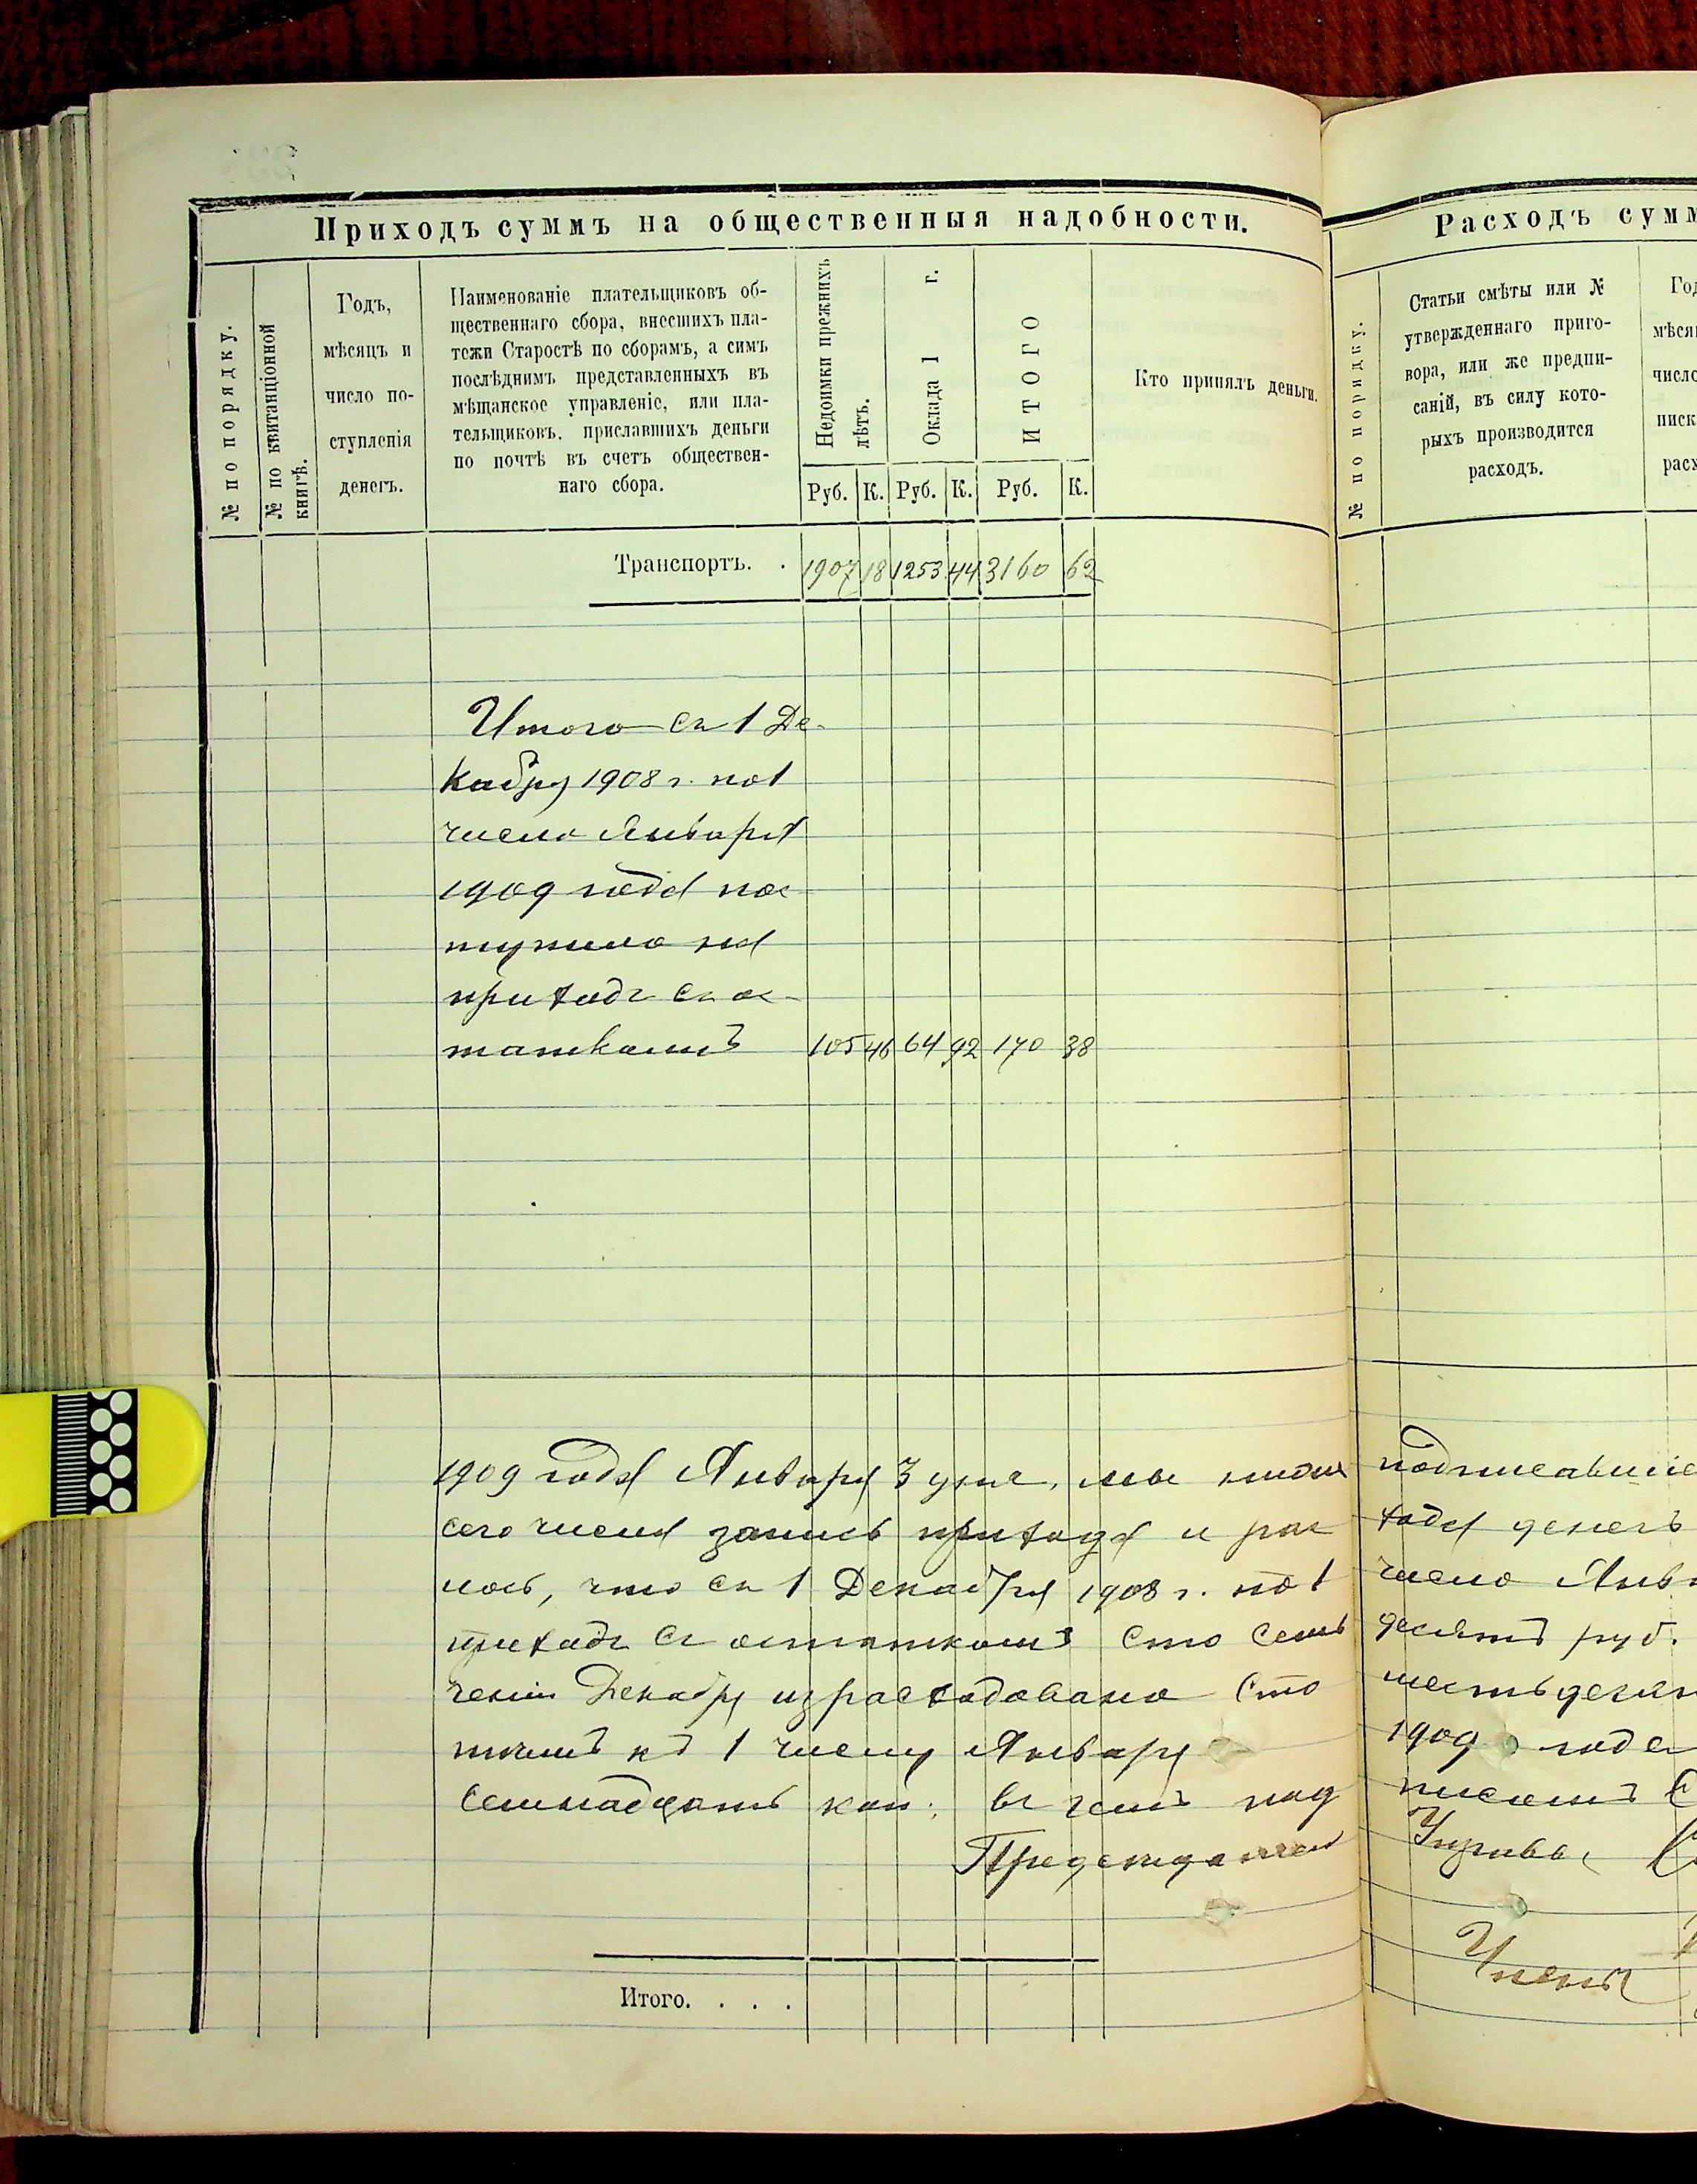 Приходъ суммъ на общественныя надобности.
№ по порядку.
№ по квитанціонной
книгѣ.
Годъ,
мѣсяцъ и
число по-
ступленія
денегъ.
Наименованіе плательщиковъ об-
щественнаго сбора, внесшихъ пла-
тежи Старостѣ по сборамъ, а симъ
послѣднимъ представленныхъ въ
мѣщанское управленіе, или пла-
тельщиковъ, приславшихъ деньги
по почтѣ въ счетъ обществен-
наго сбора.
Недоимки прежнихъ
лѣтъ.
Оклада 1 г.
ИТОГО
Кто принялъ деньги.
Руб. К. Руб. К. Руб. К.
Транспортъ. . 1907 18 1253 44 3160 62
Итого съ 1 Де-
кабря 1908 г. по 1
число Января
1909 года пос
тупило на
приходъ съ ос-
таткомъ 105 46 64 92 170 38
1909 года Января 3 дня, мы ниже
сего числа запись прихода и рас
лось, что съ 1 Декабря 1908 г. по 1
приходъ съ остаткомъ сто семь
ченіи Декабря израсходовано сто
къ 1 числу Января
семнадцать коп. въ чемъ под
Председатель
Итого. . . .
Расходъ сумм
№ по порядку.
Статьи смѣты или №
утвержденнаго приго-
вора, или же предпи-
саній, въ силу кото-
рыхъ производится
расходъ.
Год
мѣсяц
число
писк
расх
подписавшіе
хода денегъ
число Янв
десятъ руб.
шестьдеся
1909 года
писемъ
Управы
Члены